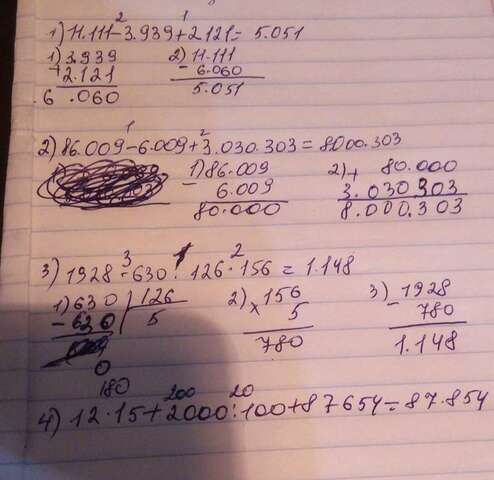 2 1
1) 11.111-3.939+2.121= 5.051
1) 3.939 2) 11.111
+ 2.121 - 6.060
6 .060 5.051
1 2
2) 86.009-6.009+3.030.303=8000.303
1) 86.009 2) + 80.000
- 6.009 3.030303
80.000 8.000.303
3 1 2
3) 1928-630:126·156=1.148
1) 630 126 2) 156 3) 1928
- 5 x 5 - 780
0 780 1.148
180 200 20
4) 12·15+2000:100+87654=87.854